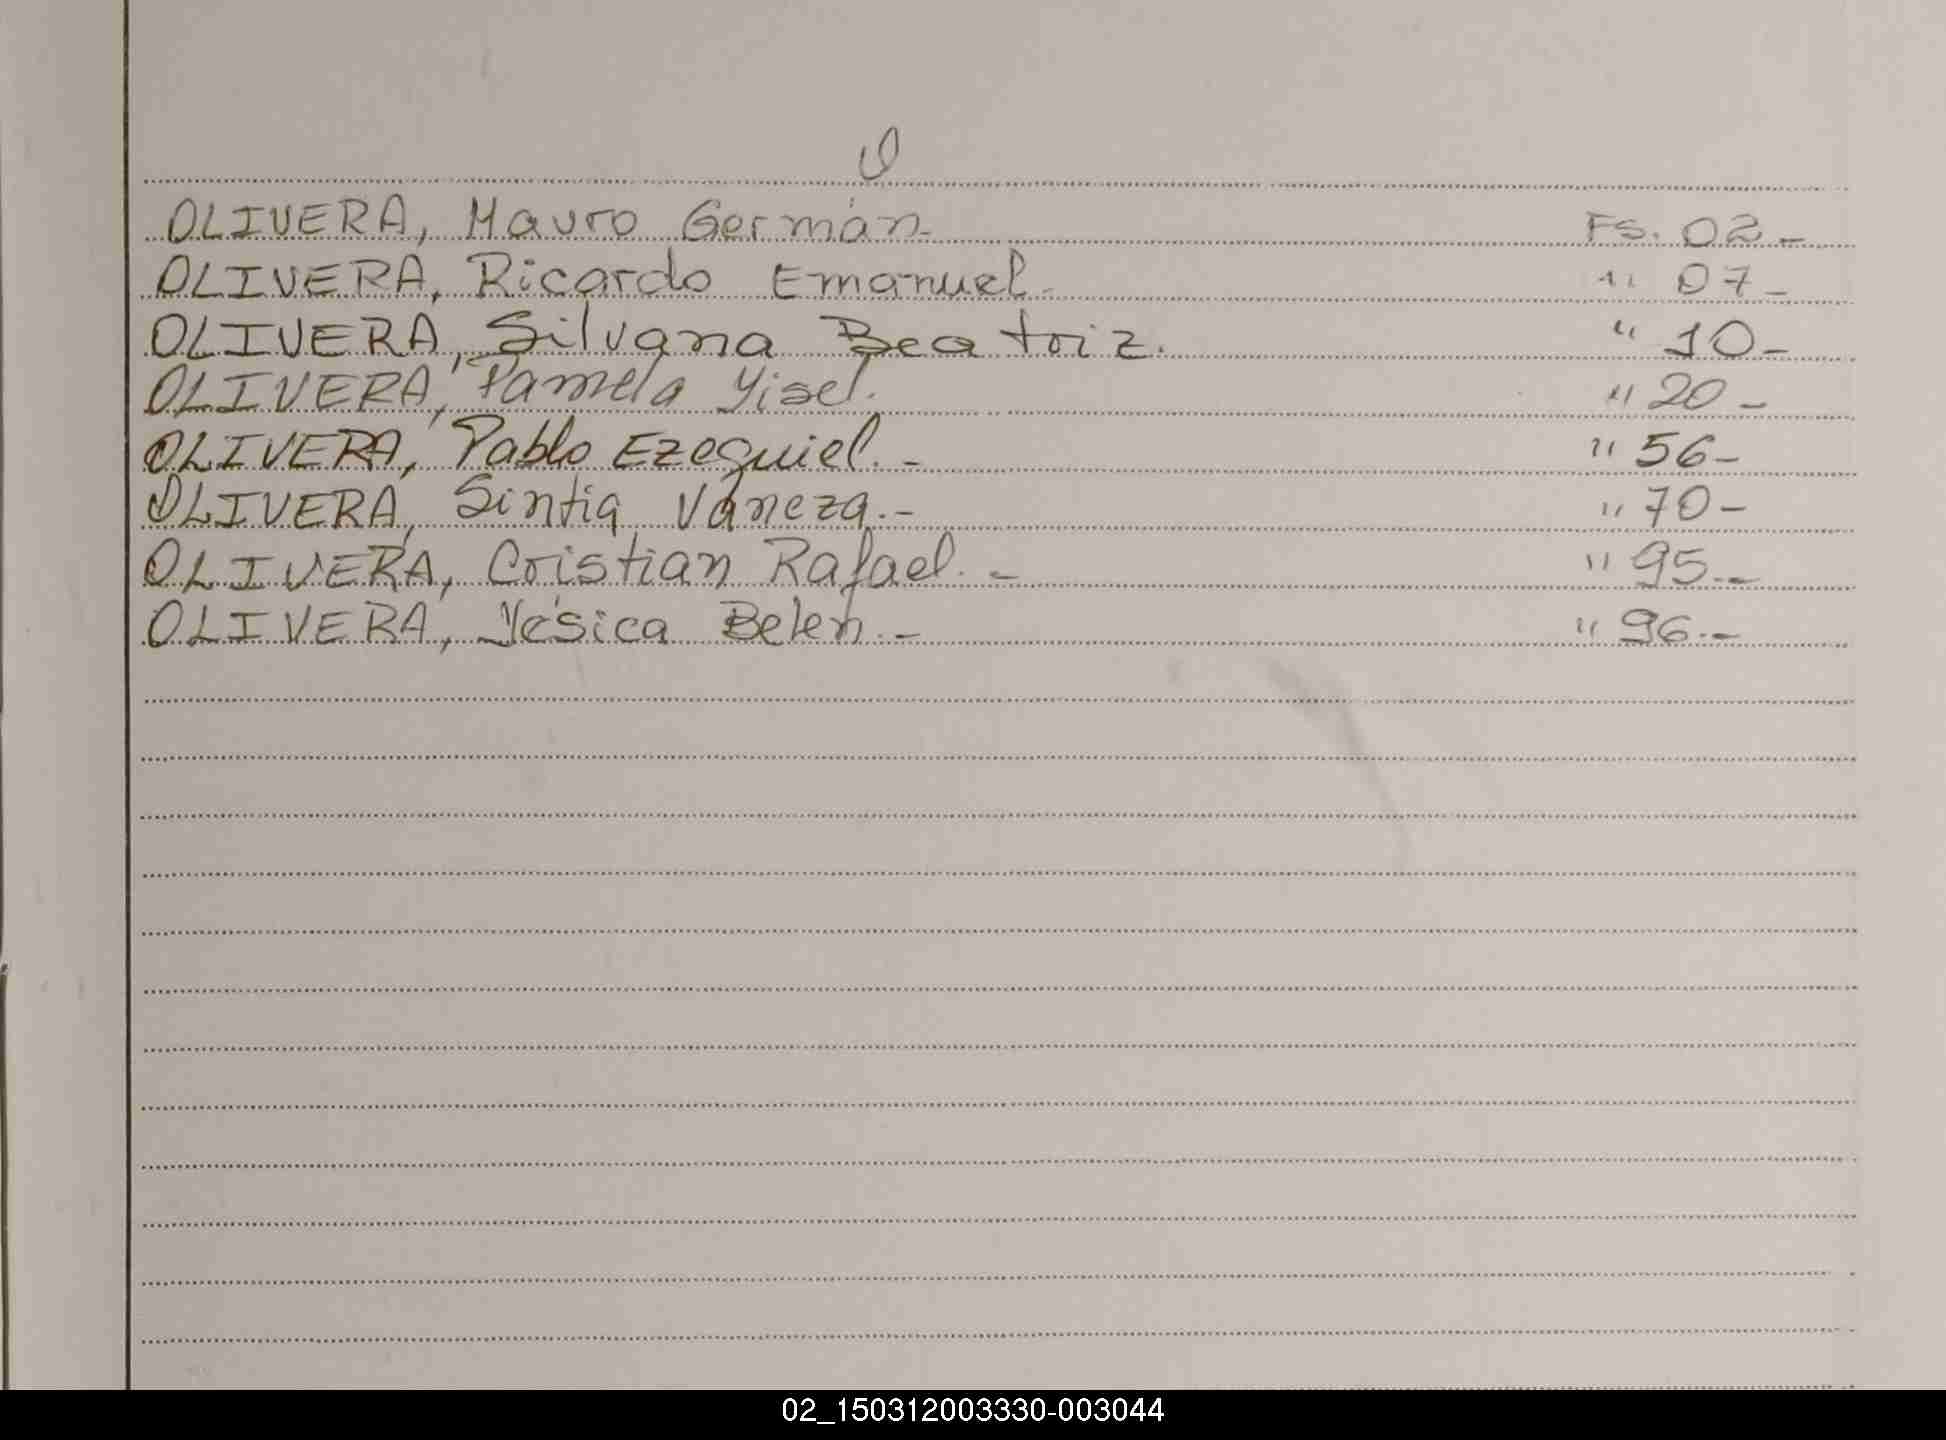 O
OLIVERA, Mauro Germán- Fs. 02-
OLIVERA, Ricardo Emanuel- " 07-
OLIVERA, Silvana Beatriz. " 10-
OLIVERA, Pamela Yisel. " 20-
OLIVERA, Pablo Ezequiel.- " 56-
OLIVERA, Sintia Vaneza.- " 70-
OLIVERA, Cristian Rafael.- " 95.-
OLIVERA, Yésica Belen.- " 96.-
02_150312003330-003044